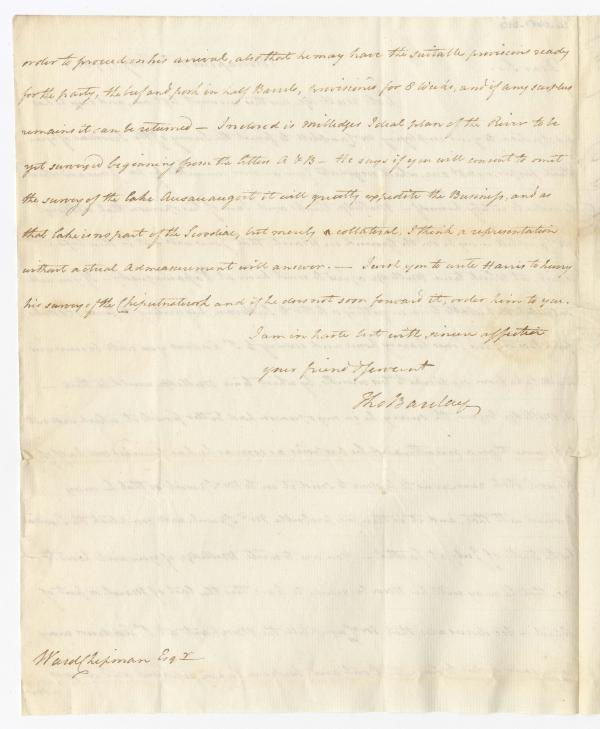 order to proceed on his arrival, also that he may have the suitable provisions ready
for the party, the beef and pork in half Barrels, provisions for 8 Weeks, and if any surplus
remains it can be returned — Inclosed is Milledges Ideal plan of the River to be
yet surveyed beginning from the letters A & B — He says if you will consent to omit
the survey of the Lake it will greatly expedite the Business, and as
that Lake is no part of the Scoodiac, but merely a collateral, I think a representation
without actual Admeasurement will answer. — I wish you to write Harris to hurry
his survey of the Cheputnatecook and if he does not soon forward it, order him to you.
I am in haste but with sincere affection
your friend & servant
Tho Barclay
Ward Chipman Esqr